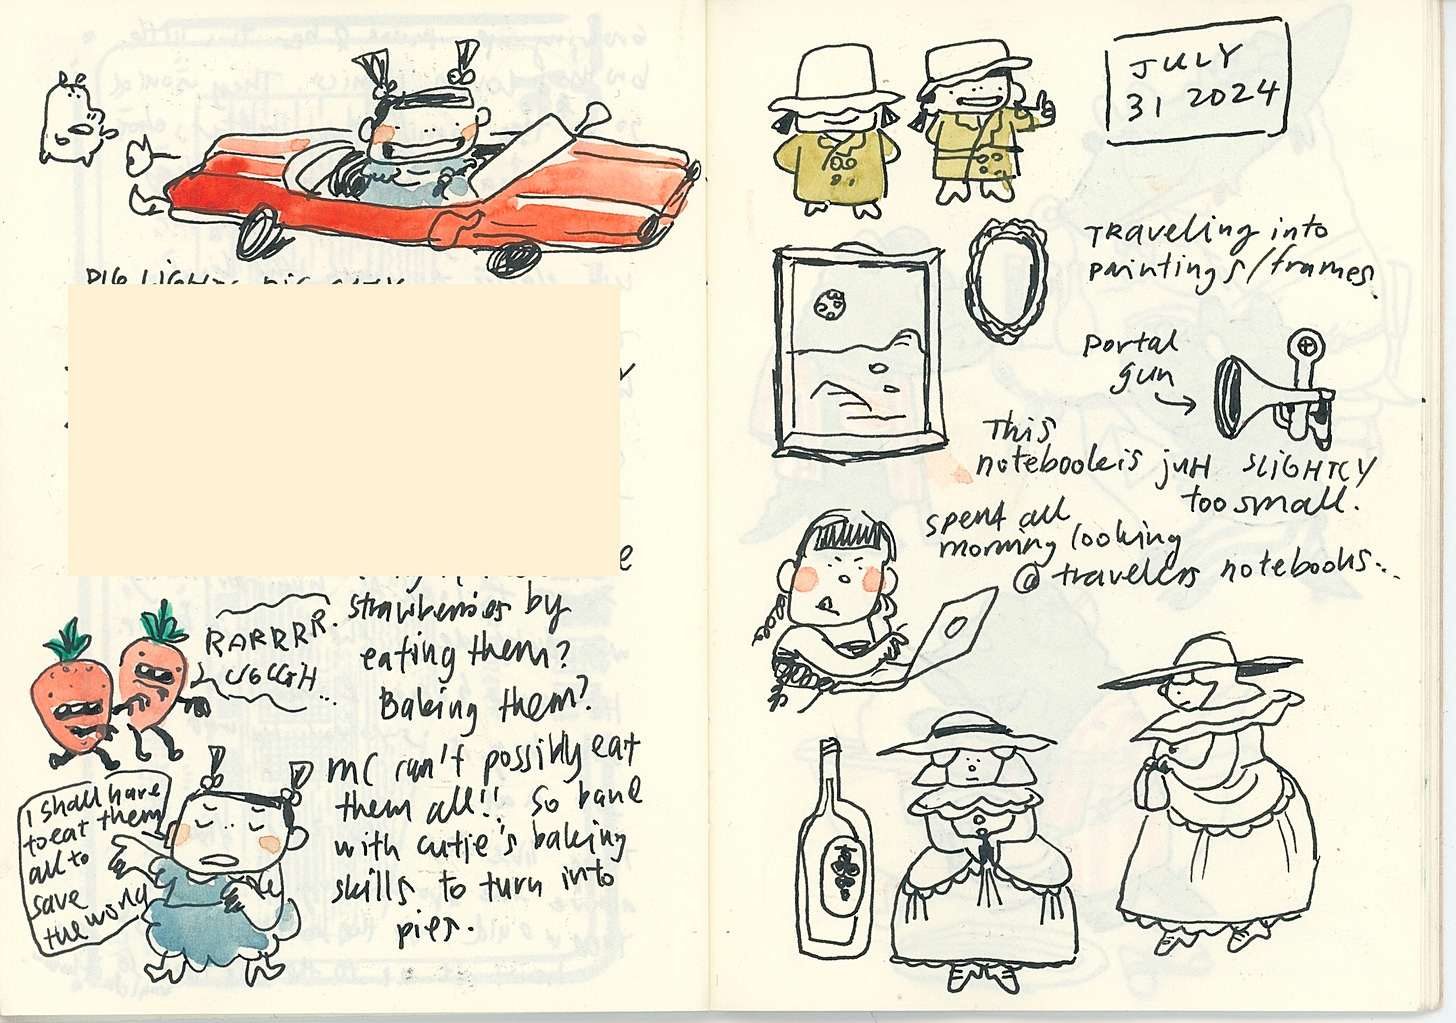 strawberries by
eating them?
Baking them?
RARRRR.
UGGGH..
MC can't possibly eat
them all!! So have
with cutie's baking
skills to turn into
pies.
I shall have
to eat them
all to
save
the world
JULY
31 2024
Traveling into
paintings/frames.
portal
gun
This
notebook is just SLIGHTLY
too small.
spent all
morning looking
@ travelers notebooks..